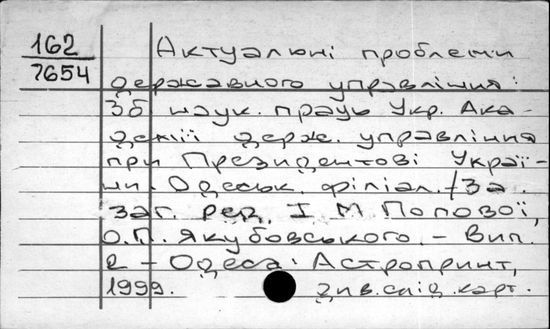 162
7654
Актуалюні проблеми
державного управління:
Зб наук. праць Укр. Ака-
демії держ. управління
при Президентові Украї-
ни. Одеськ. філіал. / За.
заг. ред. І М Попової,
О.П. Якубовського. – Вип.
2 – Одеса: Астропринт,
1999.
див. слід. карт.